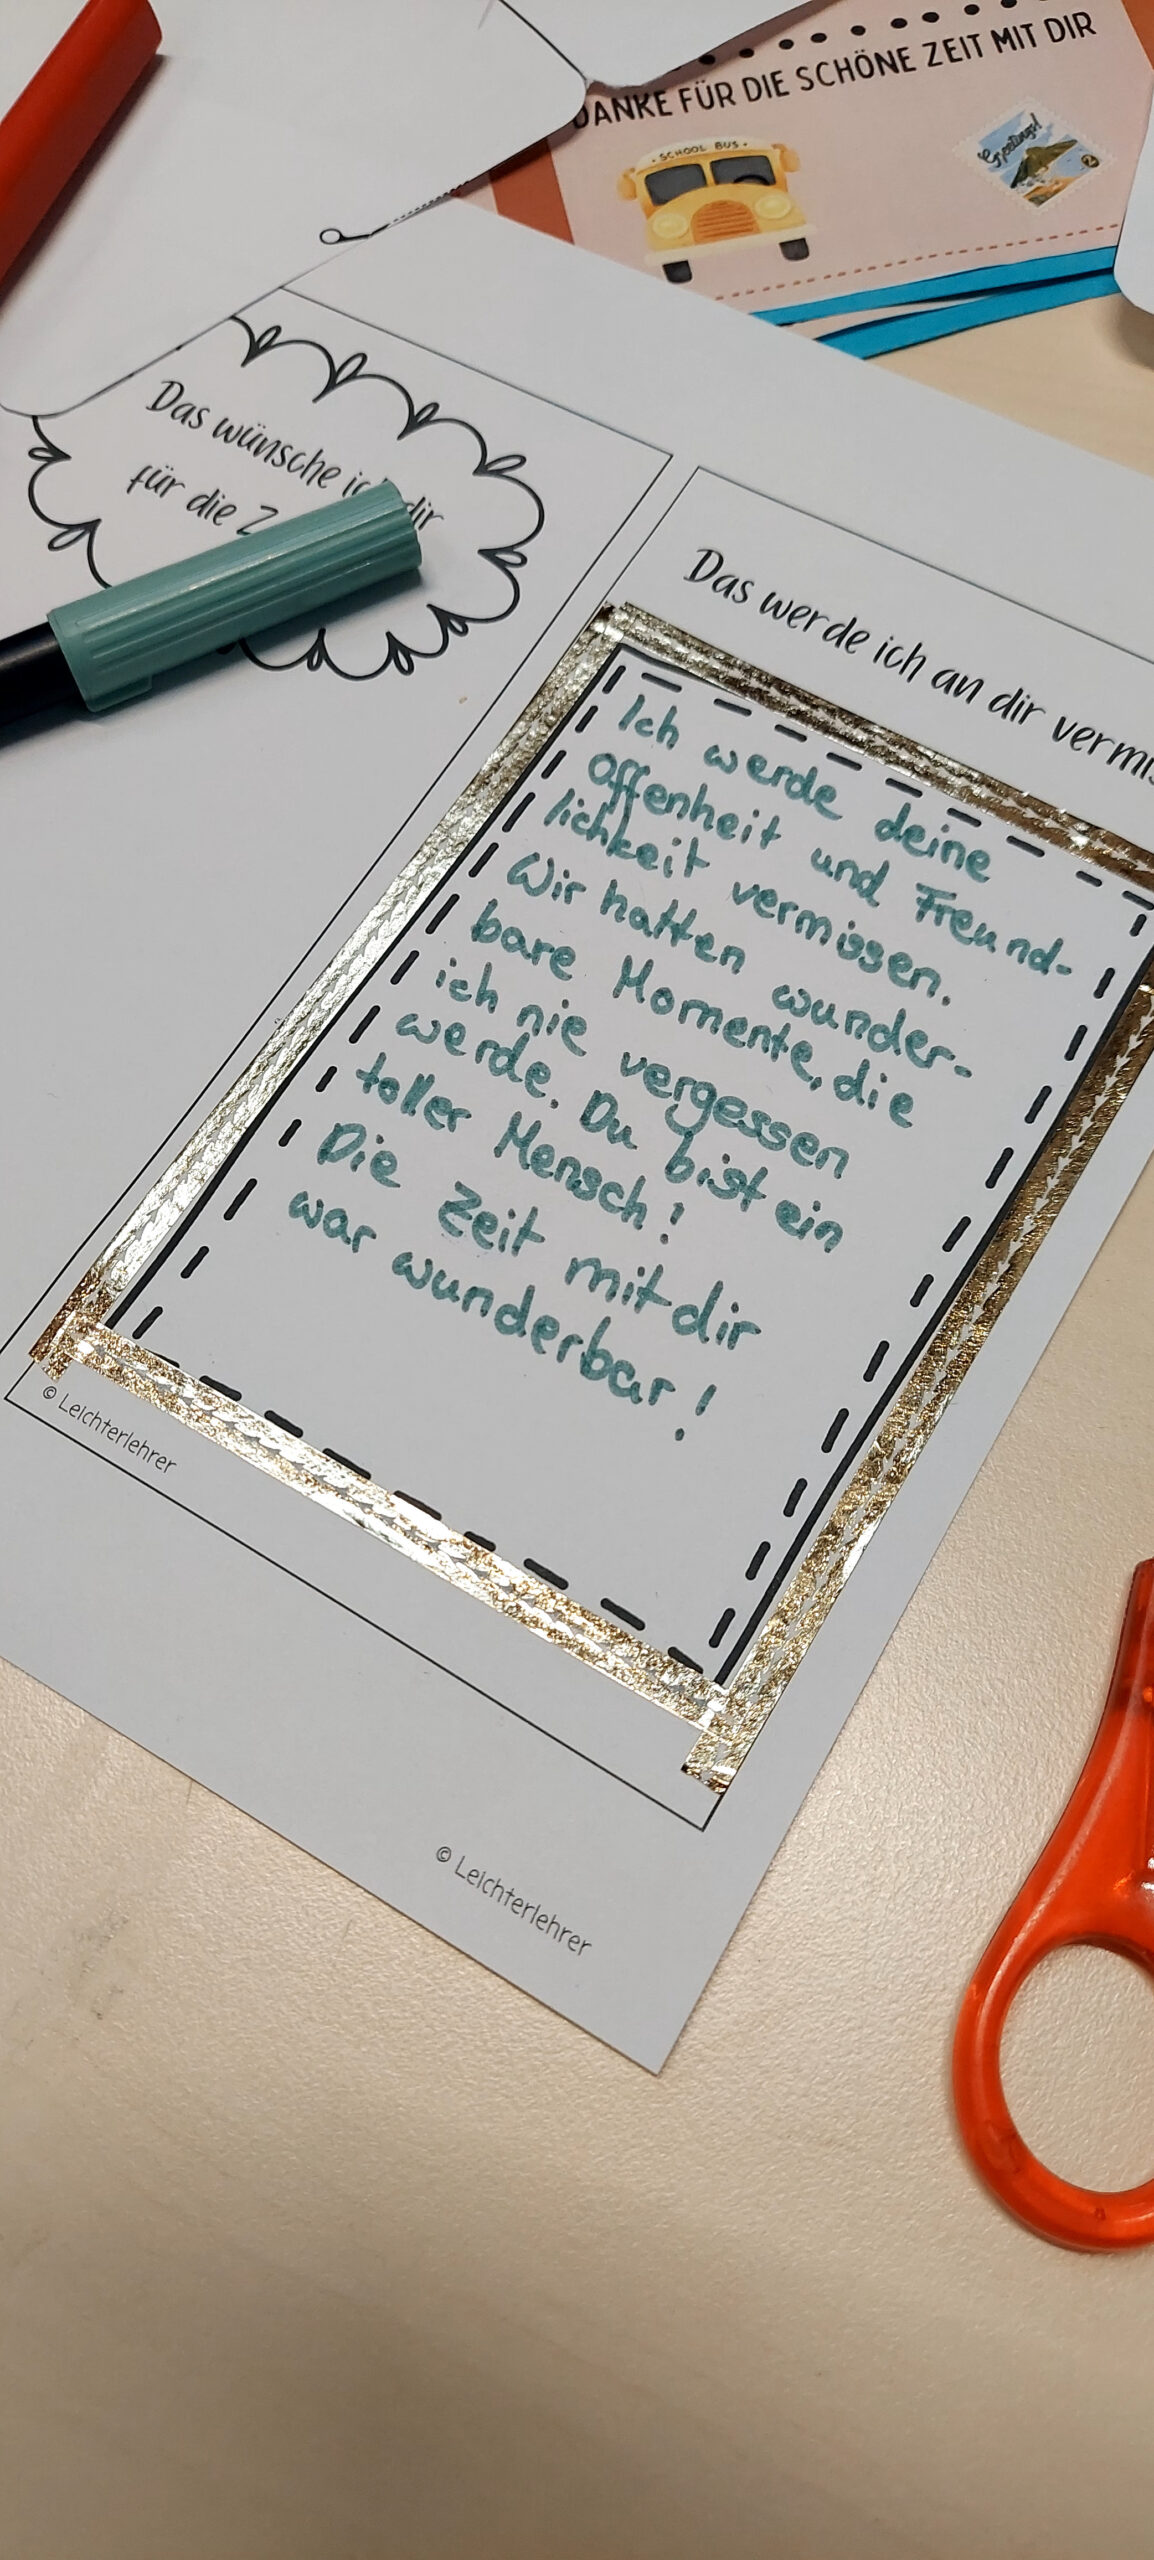 DANKE FÜR DIE SCHÖNE ZEIT MIT DIR
SCHOOL BUS
Greetings!
Das wünsche ich dir
für die
Das werde ich an dir
Ich werde deine
Offenheit und Freund-
lichkeit vermissen.
Wir hatten wunder-
bare Momente, die
ich nie vergessen
werde. Du bist ein
toller Mensch!
Die Zeit mit dir
war wunderbar!
© Leichterlehrer
© Leichterlehrer